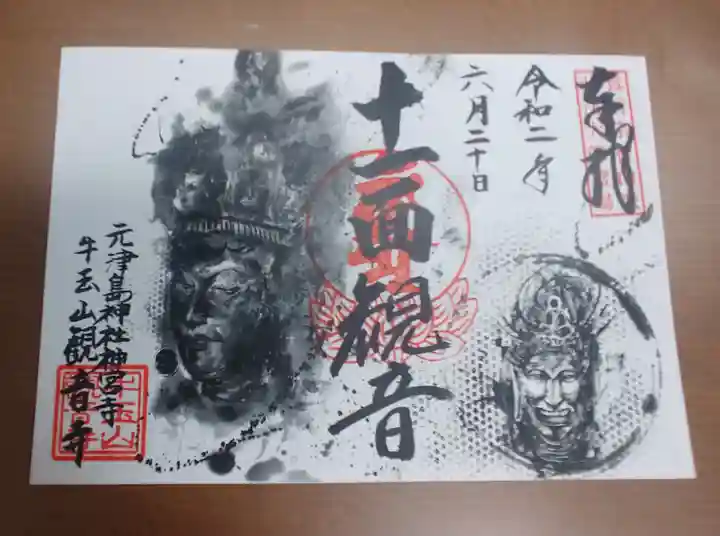 奉拝
令和二年
六月二十日
十一面観音
元津島神社神宮寺
牛玉山観音寺